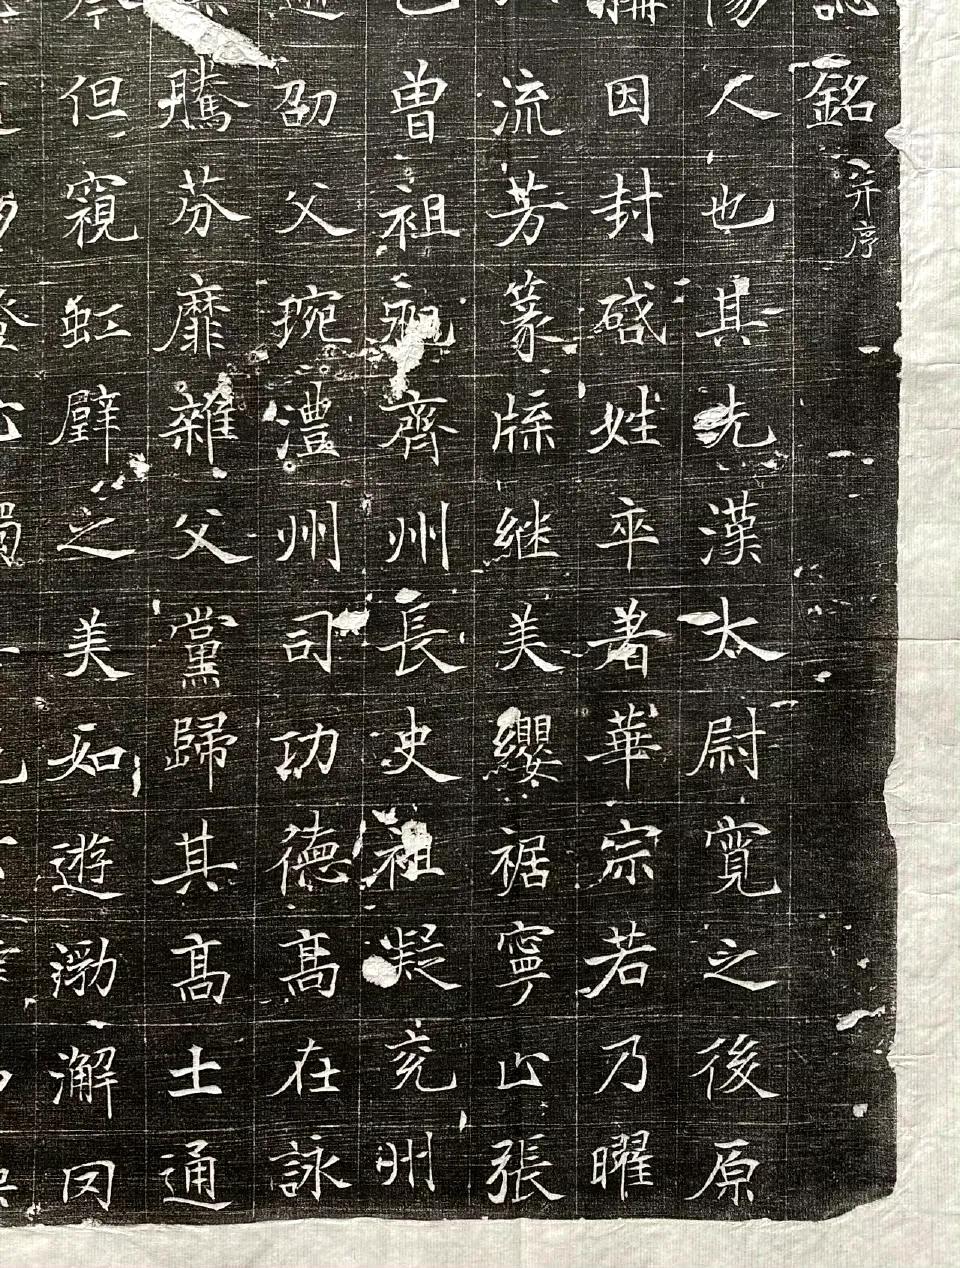 誌銘并序
人也其先漢太尉寬之後原
因封啟姓卒著華宗若乃曜
流芳篆牒継美纓裾寧止張
曾祖 齊州長史祖凝兖州
劭父琬澧州司功德高在詠
騰芬靡雜父黨歸其高士通
但窺虹璧之美如遊渤澥罔